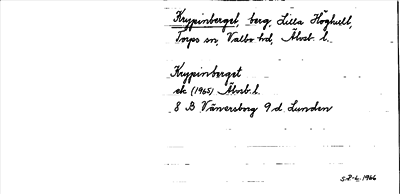 Krypinberget, berg, Lilla Höghult,
Torps sn, Valbo hd, Älvsb. l.
Krypinberget
ek (1965) Älvsb. l.
8 B Vänersborg 9 d Lunden
1966